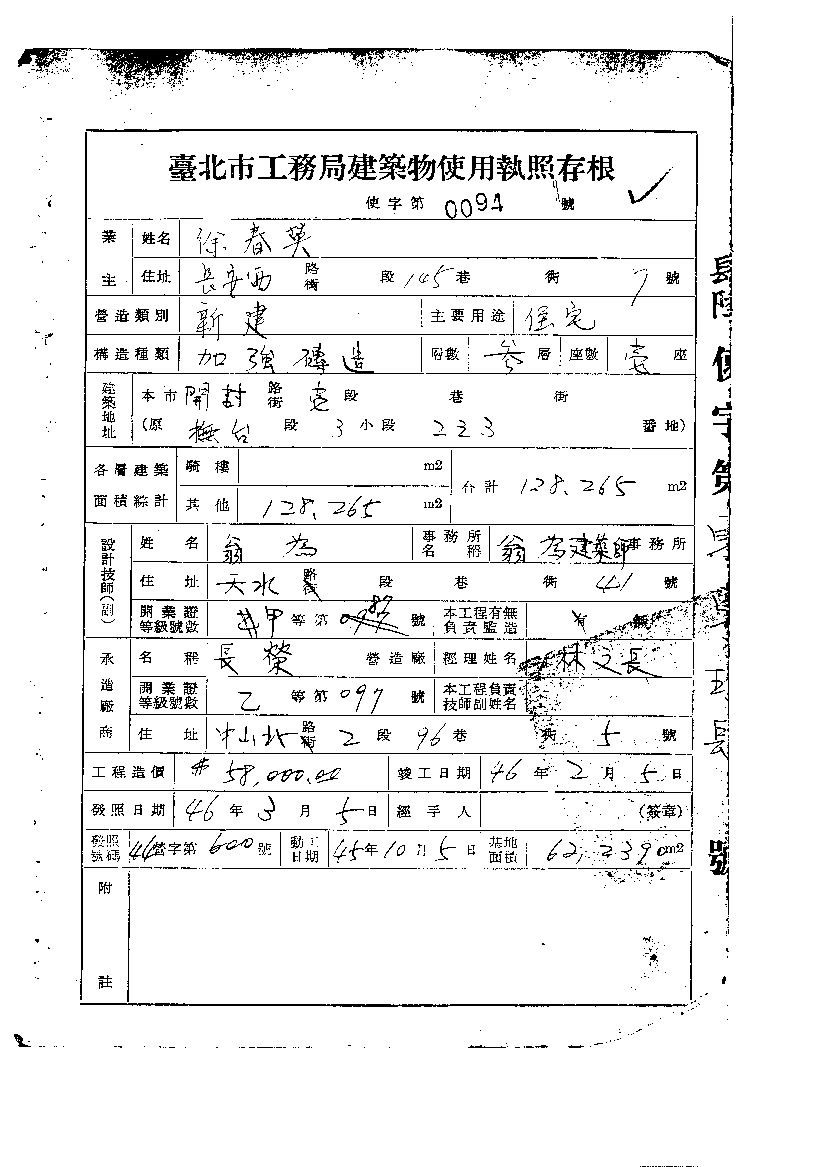 臺北市工務局建築物使用執照存根
使字第 0094 號
業主 姓名 徐春英
住址 長安西 路街 段 145 巷 衖 7 號
營造類別 新建 主要用途 住宅
構造種類 加強磚造 層數 叁層 座數 壹座
建築地址 本市 開封 路街 壹段 巷 衖
(原 撫台 段 3 小段 223 番地)
各層建築面積綜計 騎樓 m2 合計 128.265 m2
其他 128.265 m2
設計技師(副) 姓名 翁為 事務所名稱 翁為建築師事務所
住址 天水 路街 段 巷 衖 41 號
開業證等級號數 甲等第 號 本工程有無負責監造 有 無
承造廠商 名稱 長榮 營造廠 經理姓名 林文長
開業證等級號數 乙等第 097 號 本工程負責技師副姓名
住址 中山北 路街 2 段 96 巷 衖 5 號
工程造價 $58,000.00 竣工日期 46年2月5日
發照日期 46年3月5日 經手人 (簽章)
發照號碼 44營字第600號 動工日期 45年10月5日 基地面積 62.2390m2
附註
使字第
號